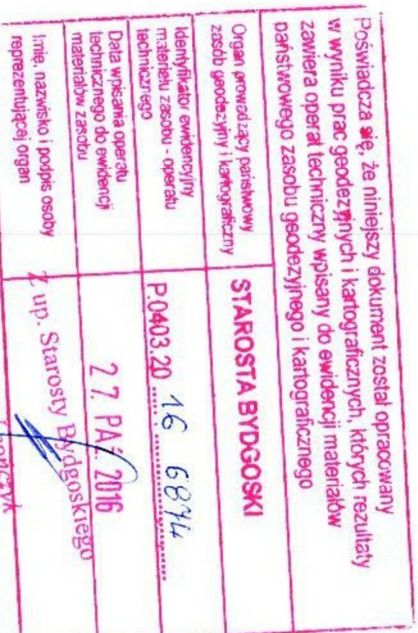 Poświadcza się, że niniejszy dokument został opracowany
w wyniku prac geodezyjnych i kartograficznych, których rezultaty
zawiera operat techniczny wpisany do ewidencji materiałów
państwowego zasobu geodezyjnego i kartograficznego
Organ prowadzący państwowy
zasób geodezyjny i kartograficzny
STAROSTA BYDGOSKI
Identyfikator ewidencyjny
materiału zasobu - operatu
technicznego
P.0403.20 16 6874
Data wpisania operatu
technicznego do ewidencji
materiałów zasobu
27. PAŹ 2016
Imię, nazwisko i podpis osoby
reprezentującej organ
Z up. Starosty Bydgoskiego